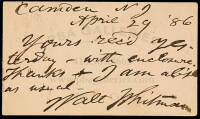 Camden N J
April 29 '86
Yours rec'd yes-
terday - with enclosure.
Thanks - I am ab't
as usual -
Walt Whitman